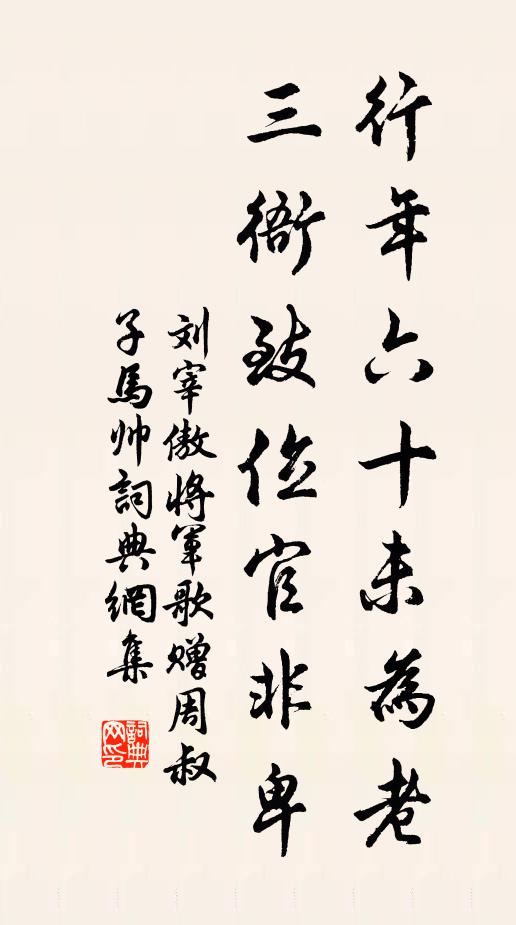 行年六十未為老
三衙致位官非卑
刘宰傲將軍歌赠周叔
子馬帅詞典網集
詞典網印